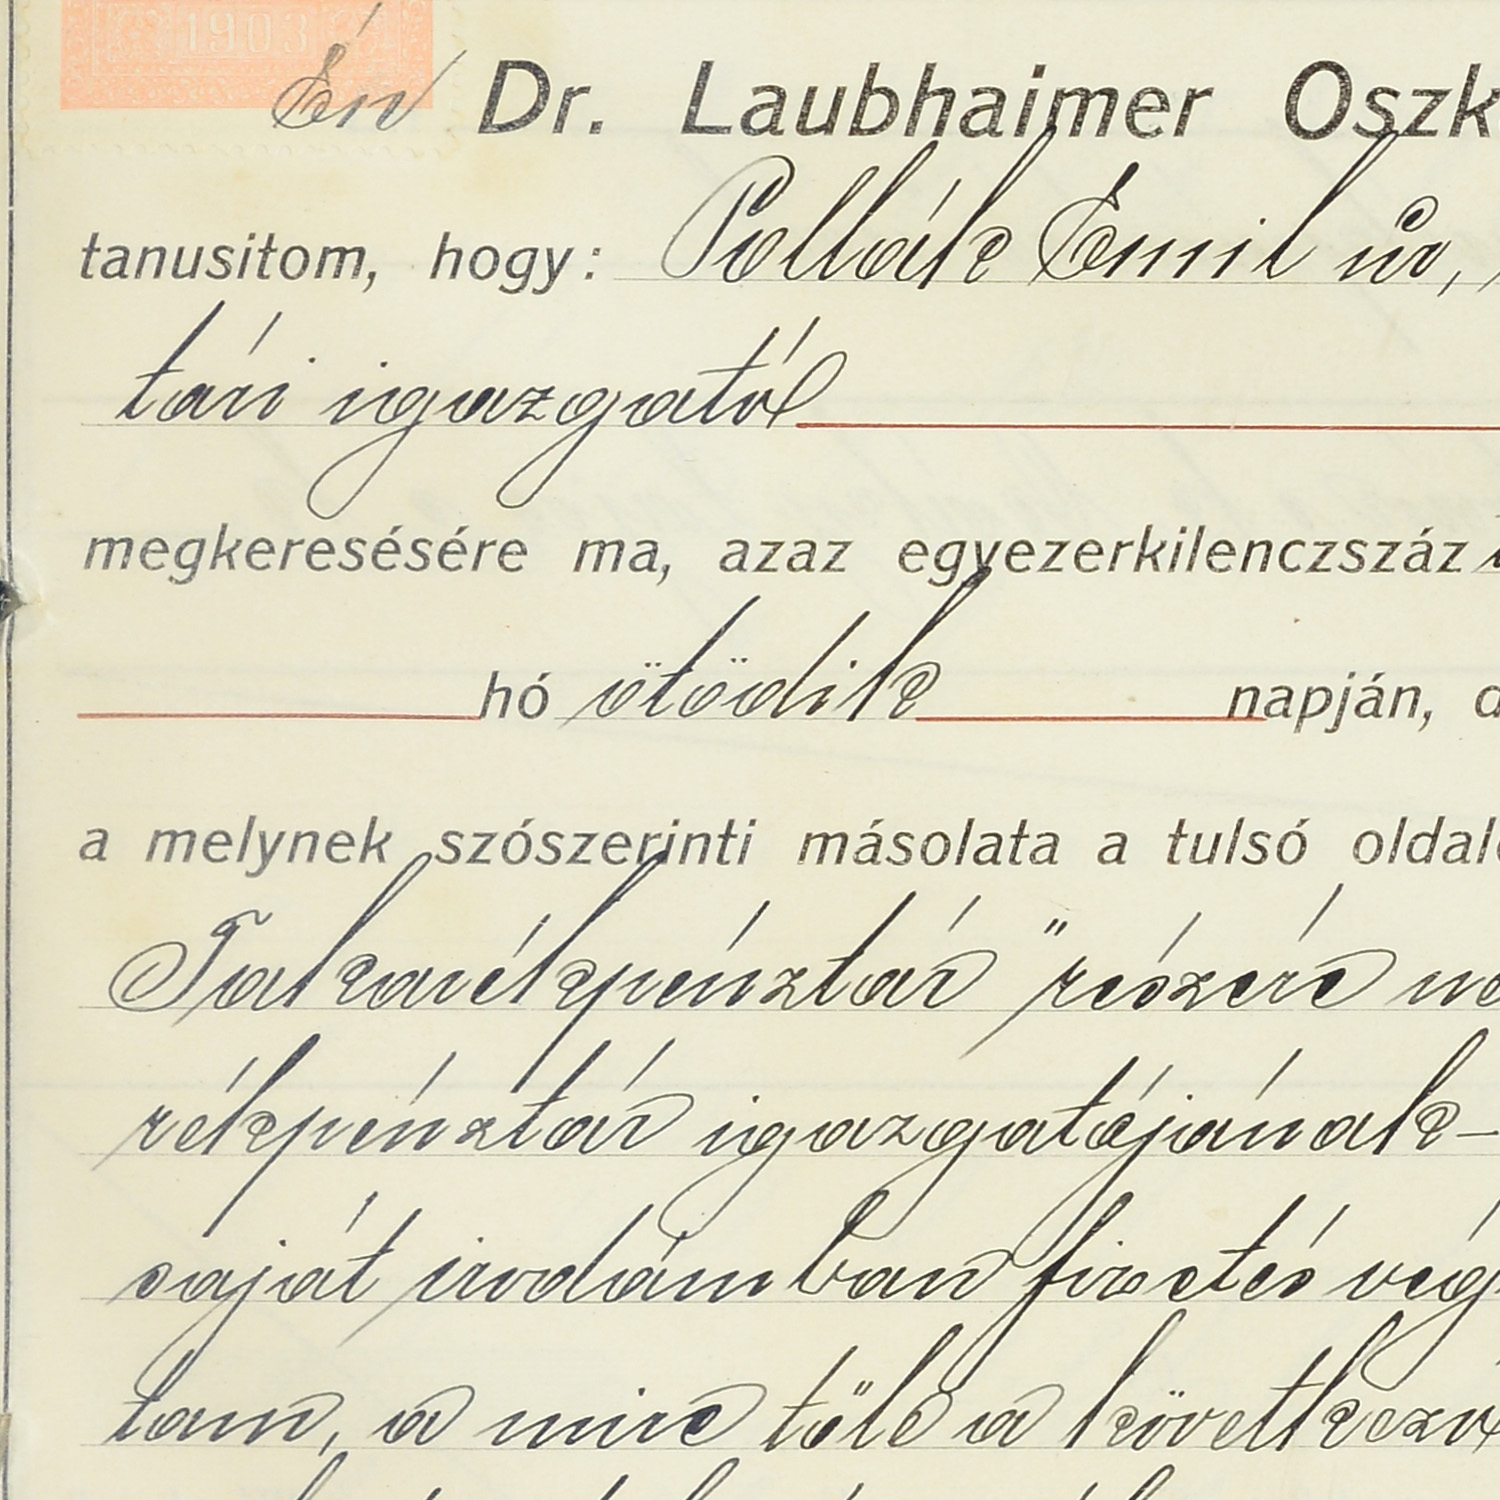 1903
Én Dr. Laubhaimer Oszk
tanusitom, hogy: Pollák Emil úr,
tári igazgató
megkeresésére ma, azaz egyezerkilenczszáz
hó ötödik napján, d
a melynek szószerinti másolata a tulsó oldal
Takarékpénztár" részére
rékpénztár igazgatójának –
saját irodámban fizetés vég
tam, a mire tőle a következő